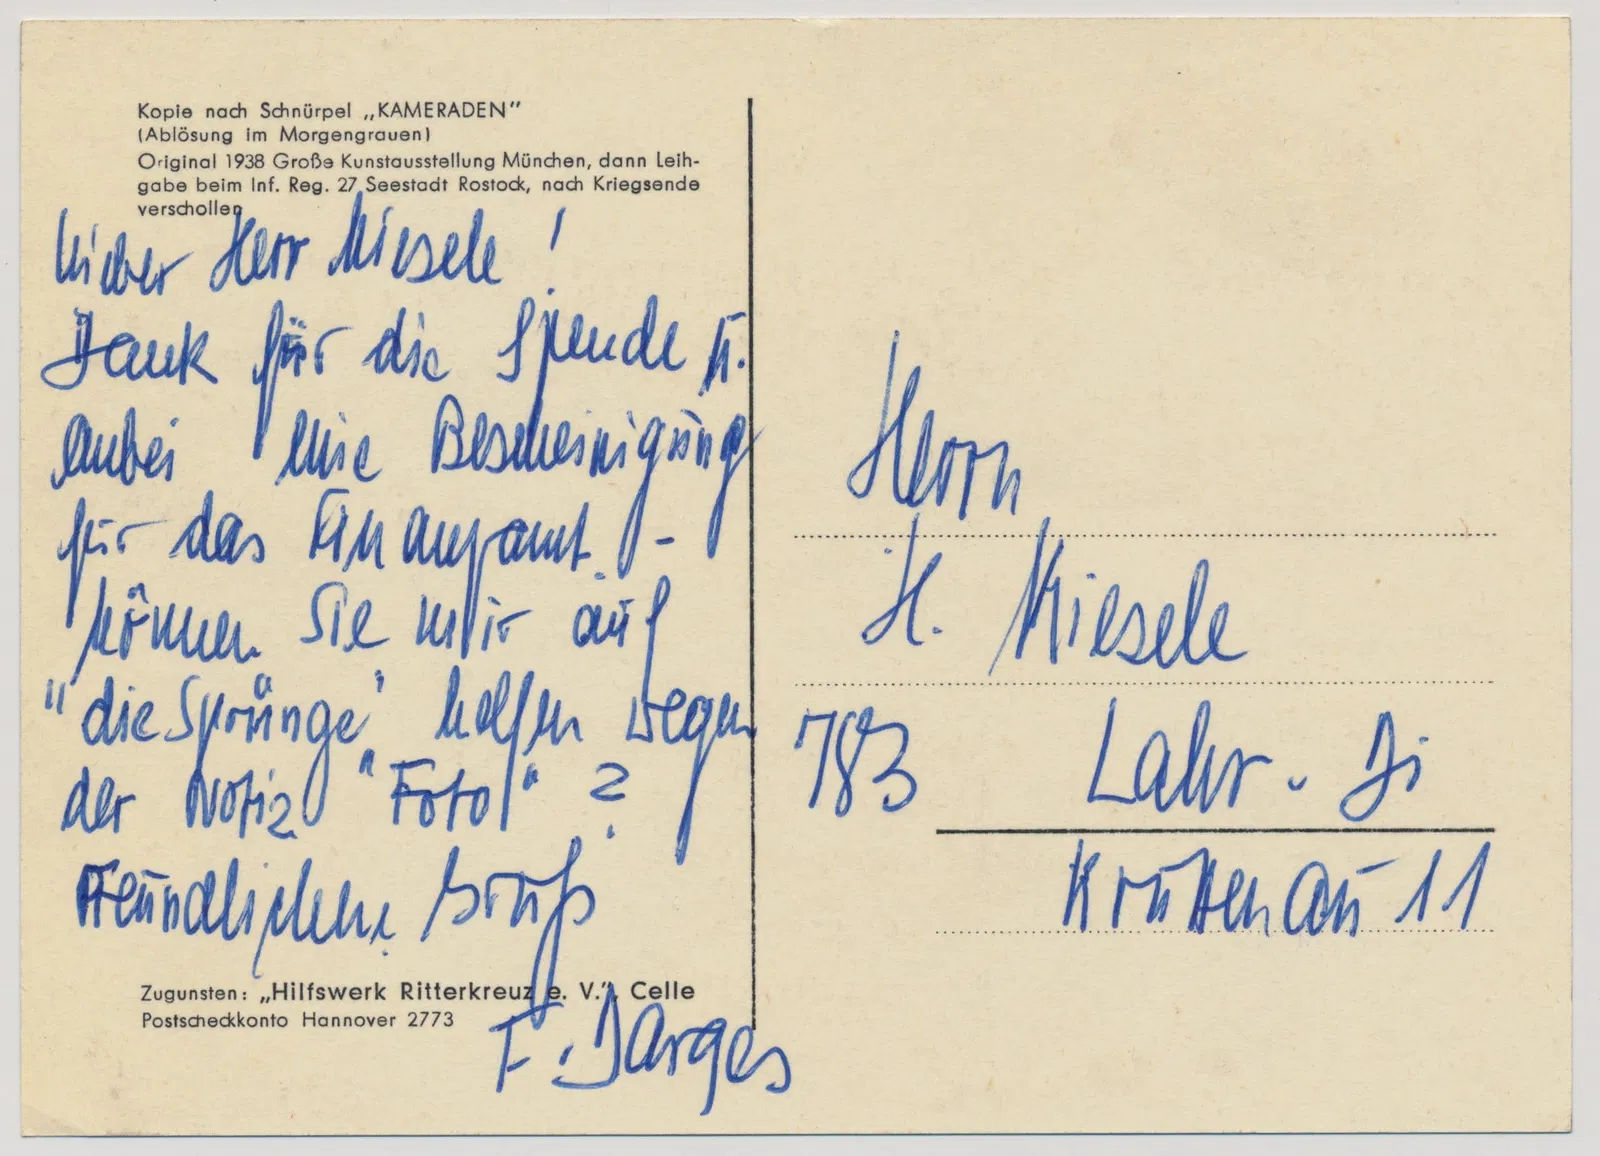 Kopie nach Schnürpel „KAMERADEN”
(Ablösung im Morgengrauen)
Original 1938 Große Kunstausstellung München, dann Leih-
gabe beim Inf. Reg. 27 Seestadt Rostock, nach Kriegsende
verschollen
Lieber Herr Kiesele!
Dank für die Spende u.
anbei eine Bescheinigung
für das Finanzamt. -
können Sie mir auf
"die Sprünge" helfen wegen
der Notiz "Foto"?
Freundlichen Gruß
F. Darges
Zugunsten: „Hilfswerk Ritterkreuz e. V.”, Celle
Postscheckkonto Hannover 2773
Herrn
H. Kiesele
783 Lahr - Di
Kruttenau 11